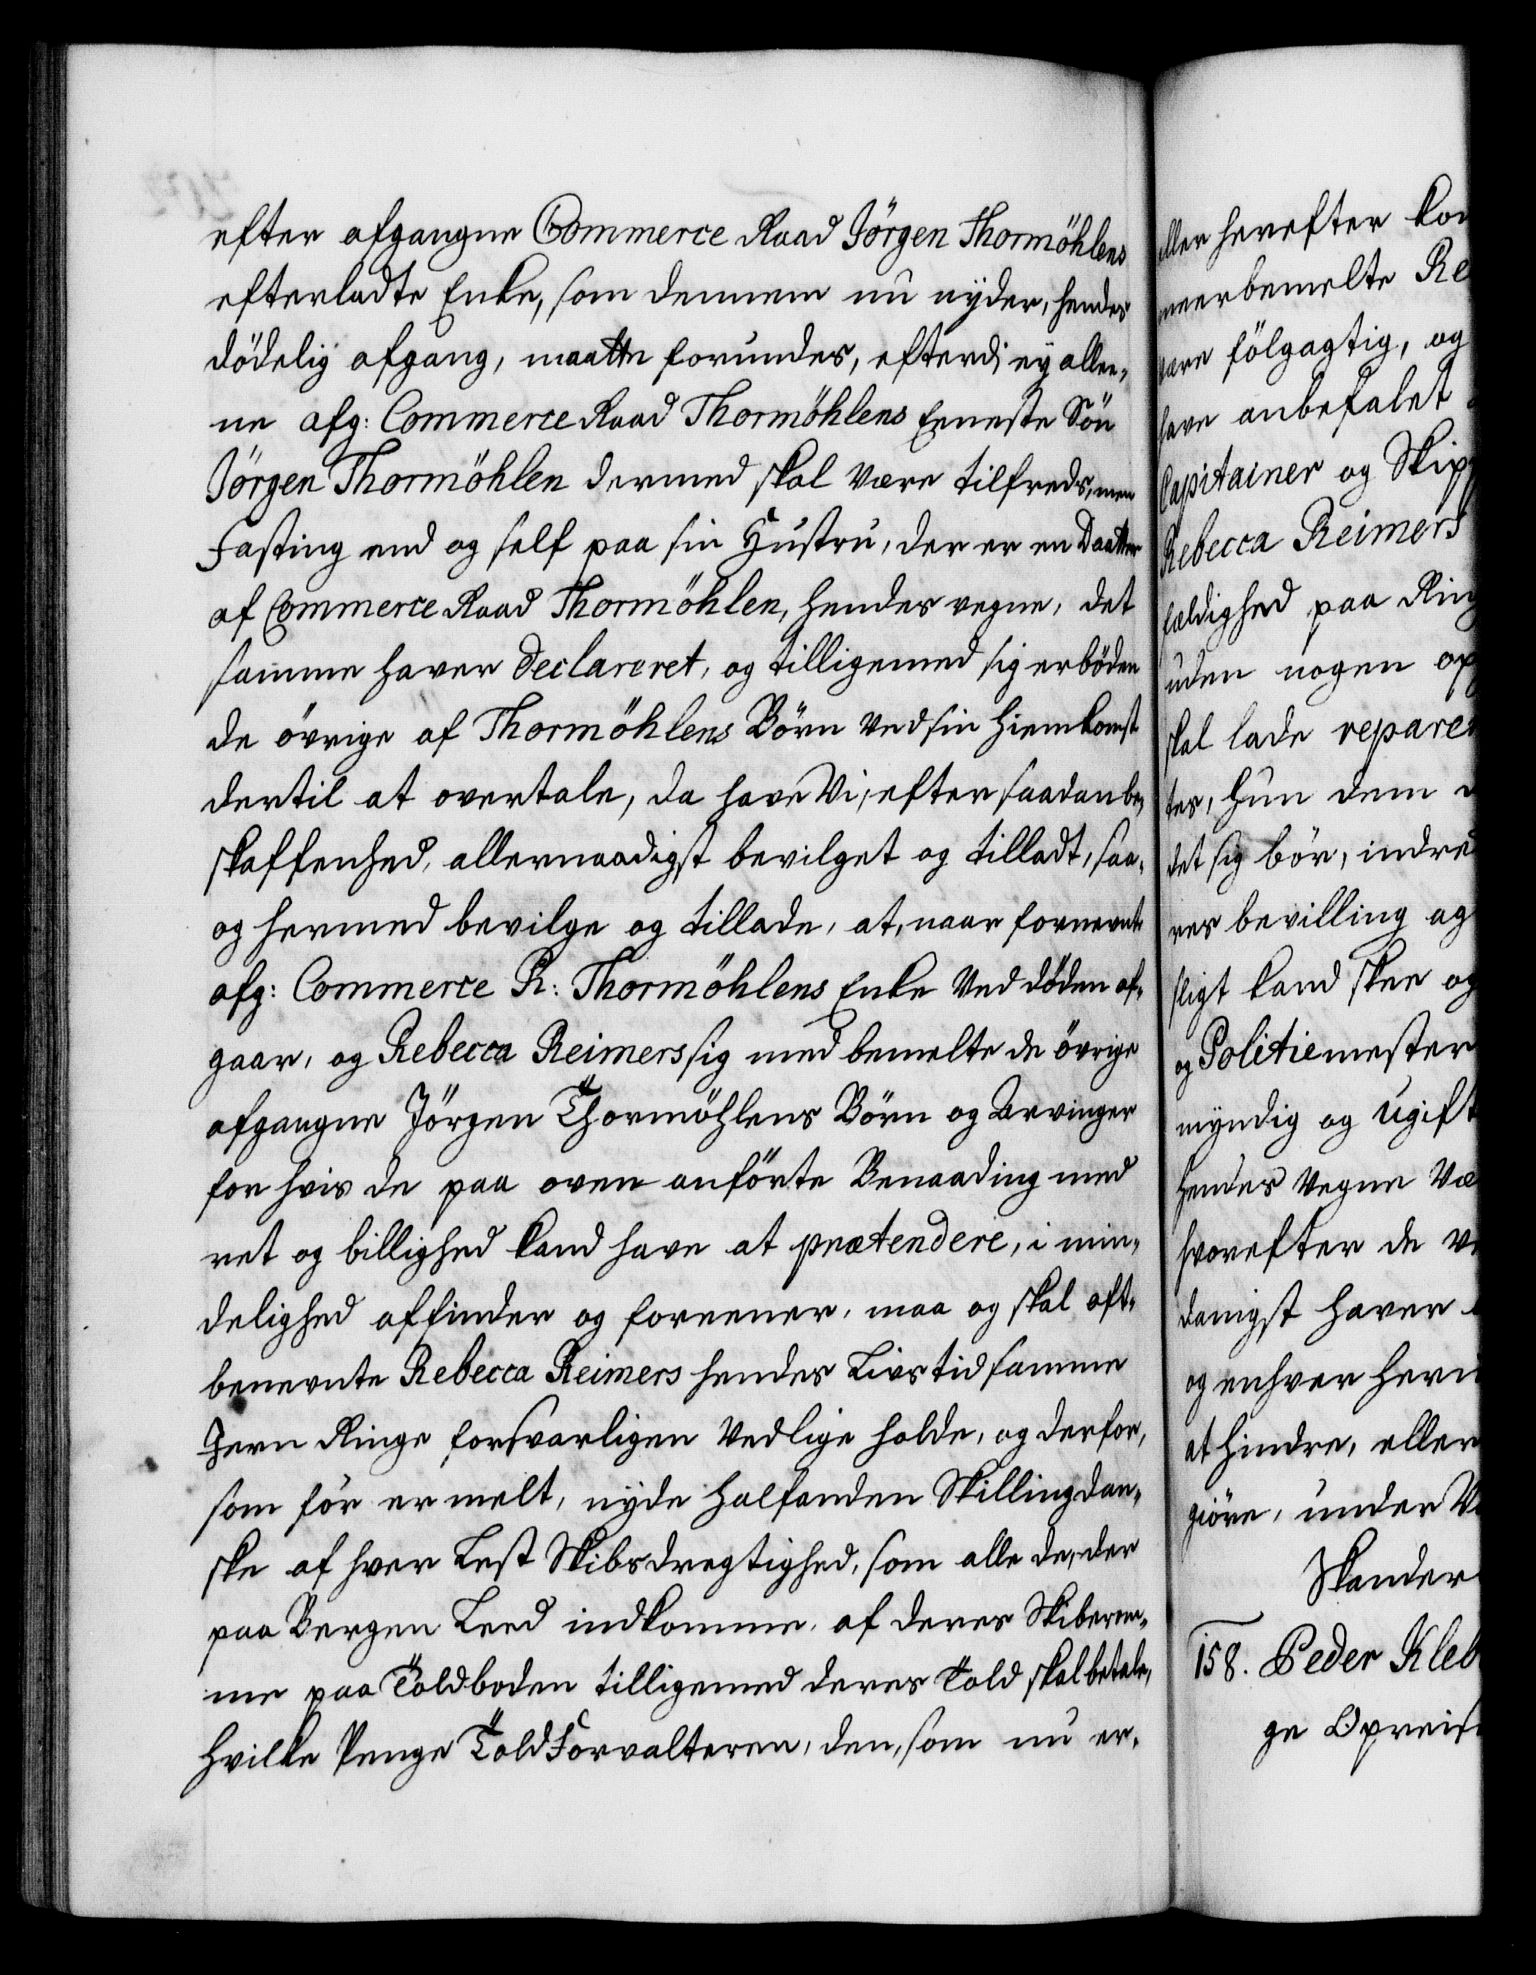 efter afgangne Commerce Raad Jörgen Thormöhlens
efterladte Enke, som dennem nu nyder, hendes
dödelig afgang, maatte forundes, efterdi ey allee-
ne afg: Commerce Raad Thormöhlens Eeneste Sön
Jörgen Thormöhlen dermed skal være tilfreds, men
Fasting end og self paa sin Hustru, der er en Daatter
af Commerce Raad Thormöhlen, hendes vegne, det
samme haver declareret, og tilligemed sig erböden
de övrige af Thormöhlens Börn ved sin Hiemkomst
dertil at overtale, da have Vi, efter saadan be-
skaffenhed, allernaadigst bevilget og tilladt, saa-
og hermed bevilge og tillade, at, naar fornevnte
afg: Commerce R: Thormöhlens Enke ved döden af-
gaar, og Rebecca Reimers sig med bemelte de övrige
afgangne Jörgen Thormöhlens Börn og Arvinger
for hvis de paa oven anförte Benaading med
ret og billighed kand have at prætendere, i min-
delighed affinder og foreener, maa og skal oft-
benevnte Rebecca Reimers hendes Livs tid samme
Jern Ringe forsvarligen vedlige holde, og derfor,
som för er melt, nyde halfanden Skilling dan-
ske af hver Lest Skibs dregtighed, som alle de, der
paa Bergen Leed indkomme, af deres Skiberem-
me paa Toldboden tilligemed deres Told skal betale,
Hvilke Penge Told Forvalteren, den, som nu er,
eller herefter kom
meerbemelte Re
være fölgagtig, og
have anbefalet
Capitainer og Skip
Rebecca Reimers
fældighed paa Ring
uden nogen op
skal lade reparer
tes, hun dem
det sig bör, indre
res bevilling og
sligt kand skee og
og Politiemester
myndig og ugift
hendes Vegne Væ
hvorefter de ve
danigst haver
og enhver heri
at hindre, eller
giöre, under V
Skander
158. Peder Kleb
ge Opreis